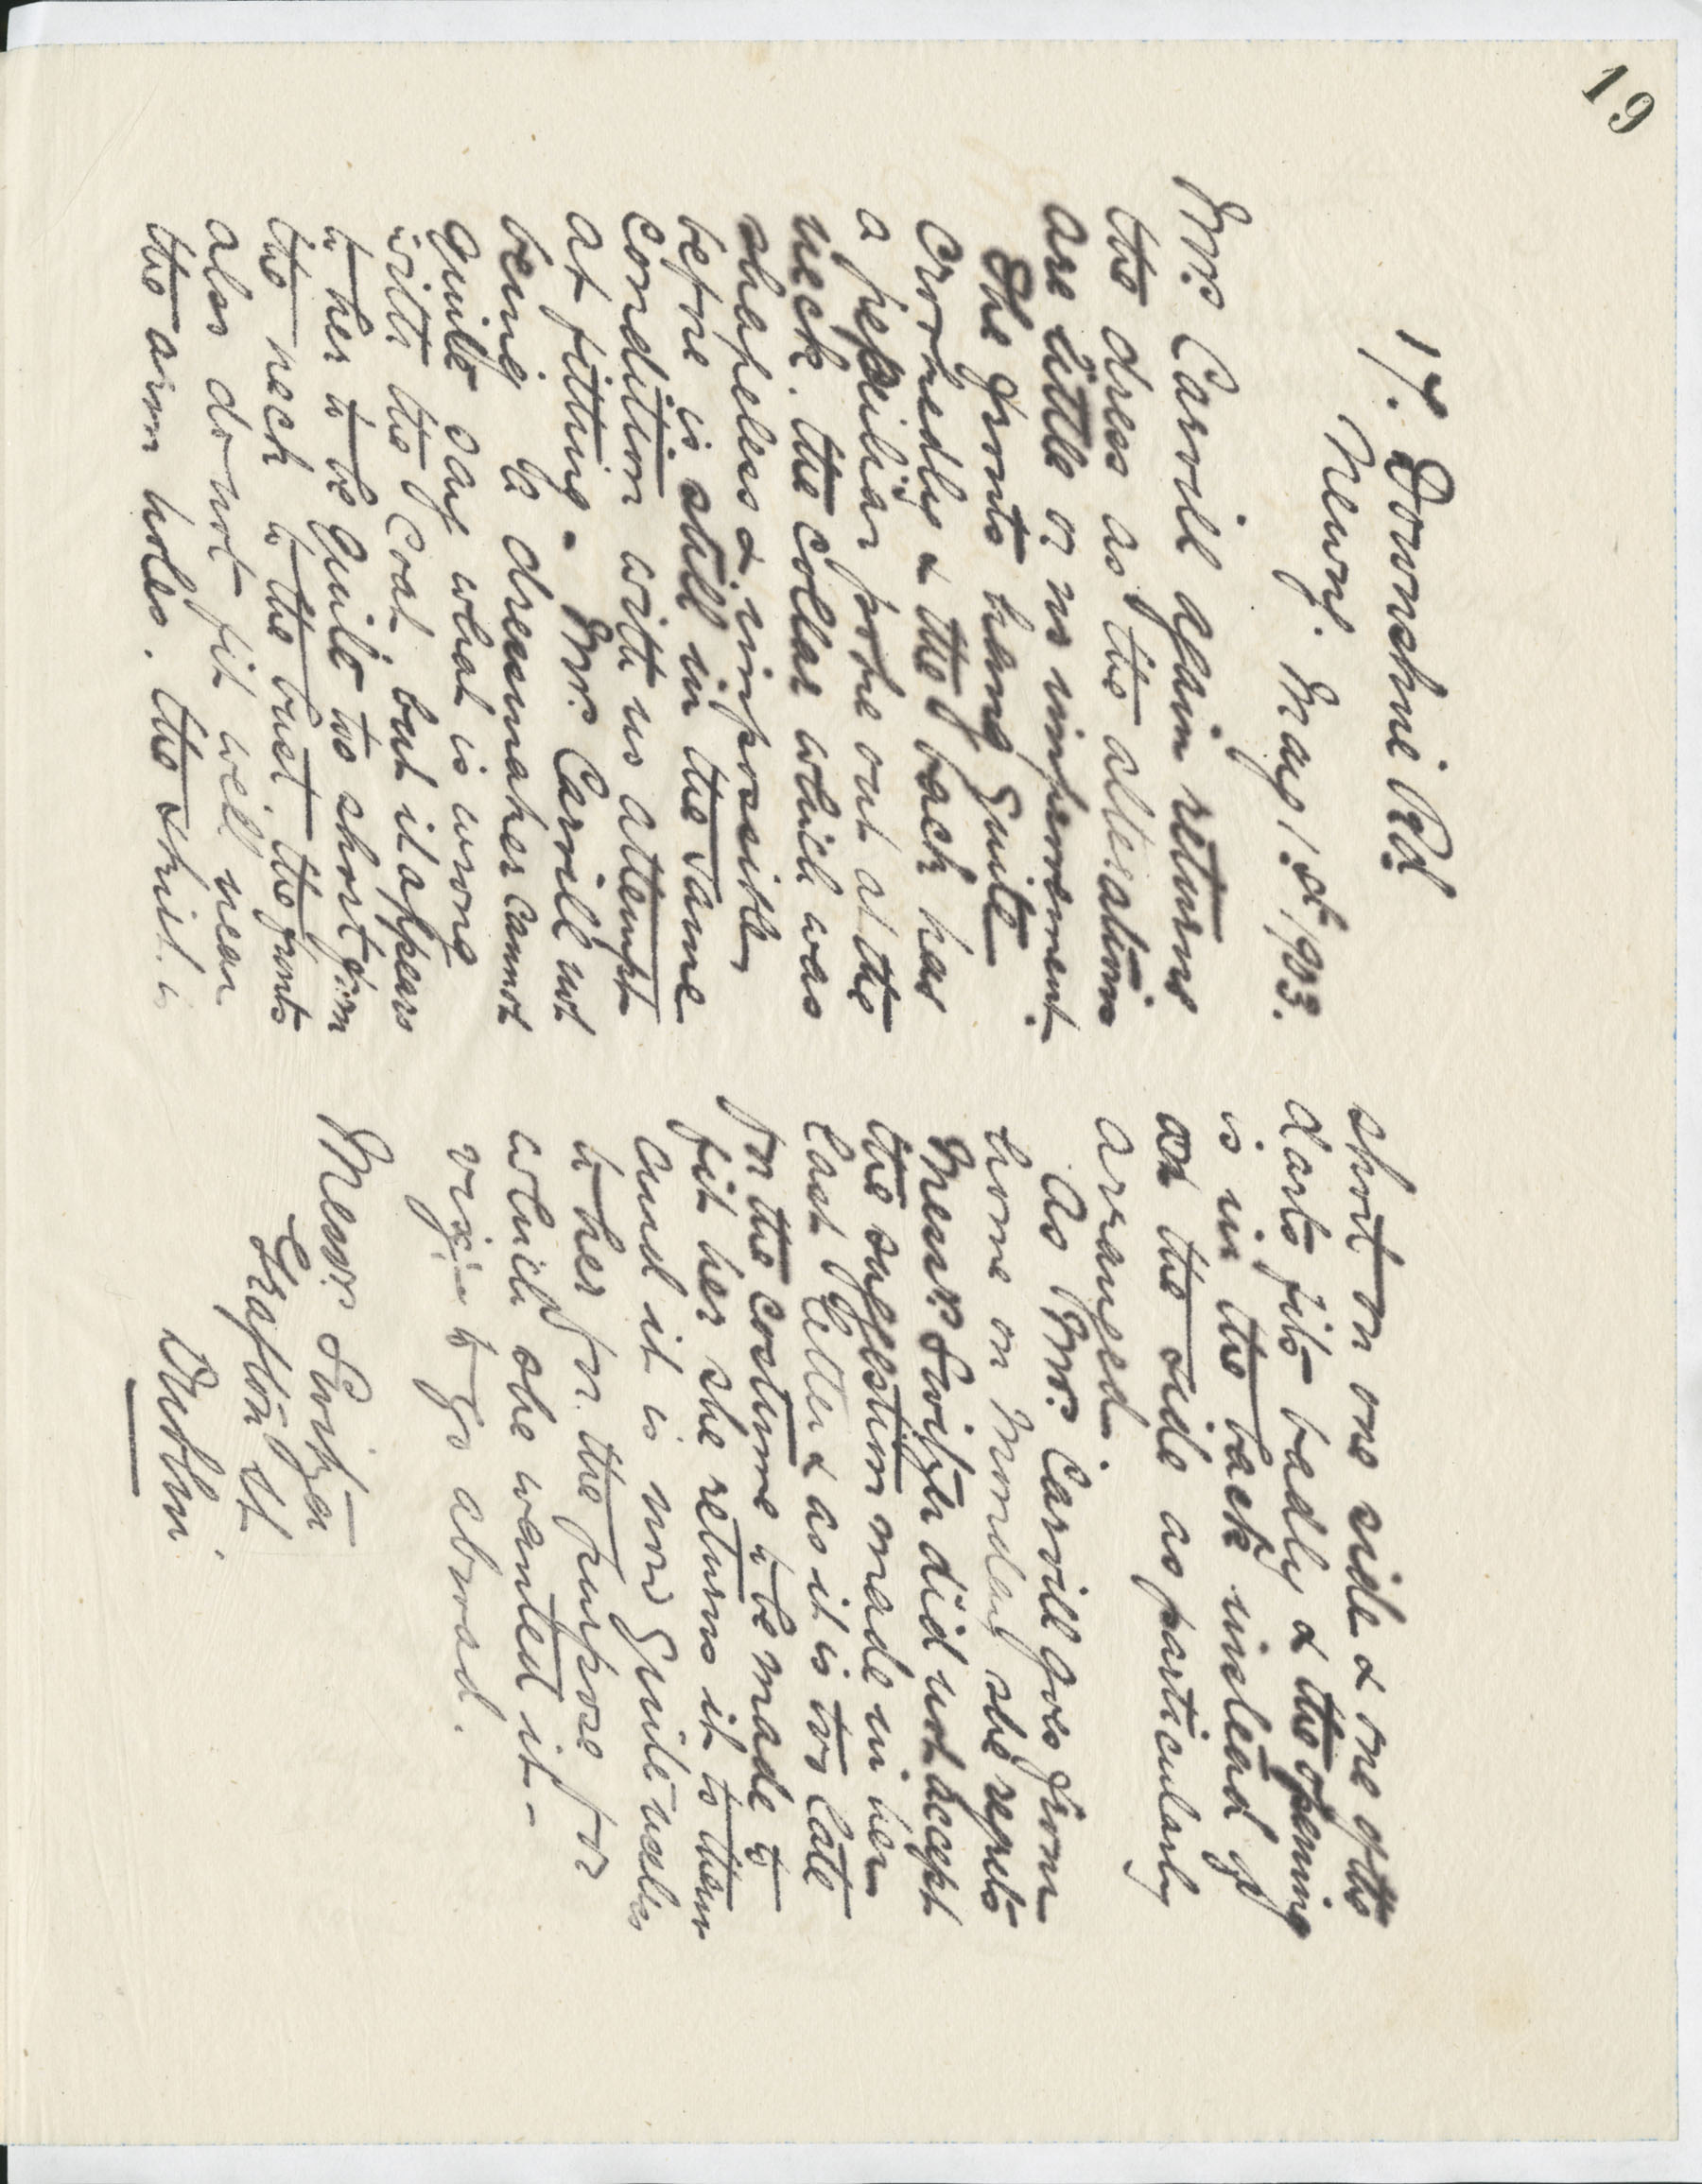 19
17. Downshire Rd
Newry. May 1st 1903.
Mrs Carvill again returns
the dress as the alterations
are little or no improvement.
The fronts hang quite
crookedly & the back has
a peculiar poke out at the
neck. The collar which was
shapeless & impossible
before is still in the same
condition with no attempt
at fitting - Mrs Carvill not
being a dressmaker cannot
quite say what is wrong
with the coat, but it appears
to her to be quite too short from
the neck to the bust. The fronts
also do not fit well near
the arm holes. The skirt is
short on one side & one of the
darts fits badly & the opening
is in the back instead of
on the side as particularly
arranged.
As Mrs Carvill goes from
home on Monday she regrets
Messrs Switzer did not accept
the suggestion made in her
last letter & as it is too late
for the costume to be made to
fit her she returns it to them
and it is now quite useless
to her for the purpose for
which she wanted it -
viz: - to go abroad.
Messrs Switzer
Grafton St
Dublin.